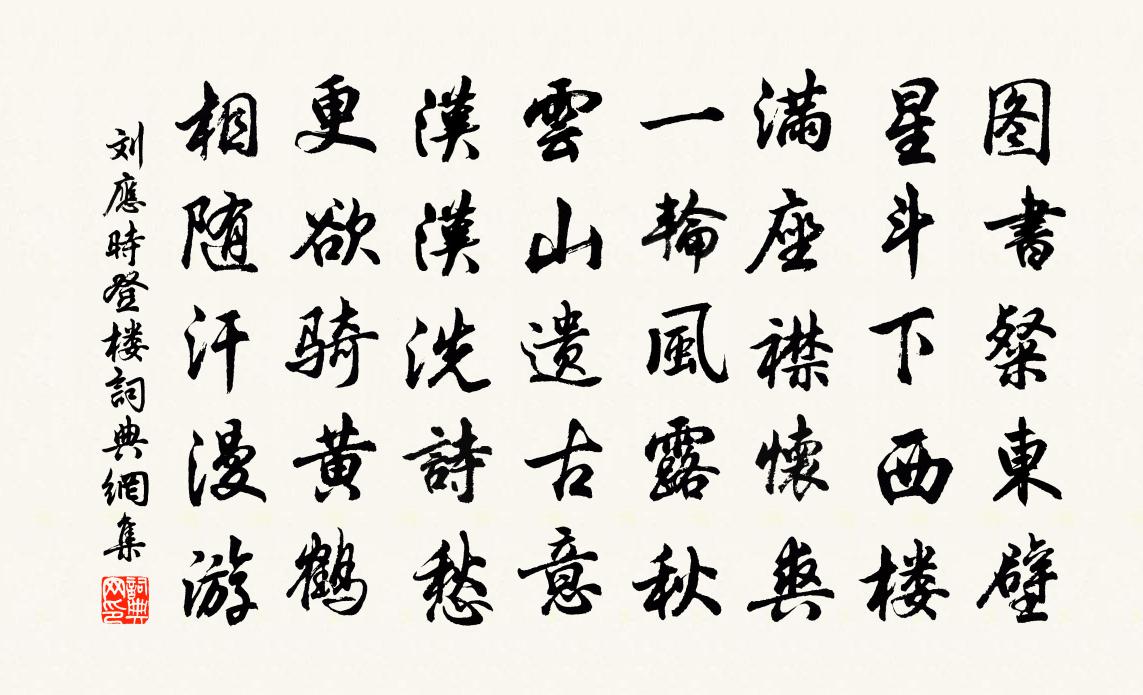 图書粲東壁
星斗下西楼
满座襟懷爽
一輪風露秋
雲山遗古意
漢漢洗詩愁
更欲骑黄鹤
相随汗漫游
刘應時登楼詞典網集
詞典网印